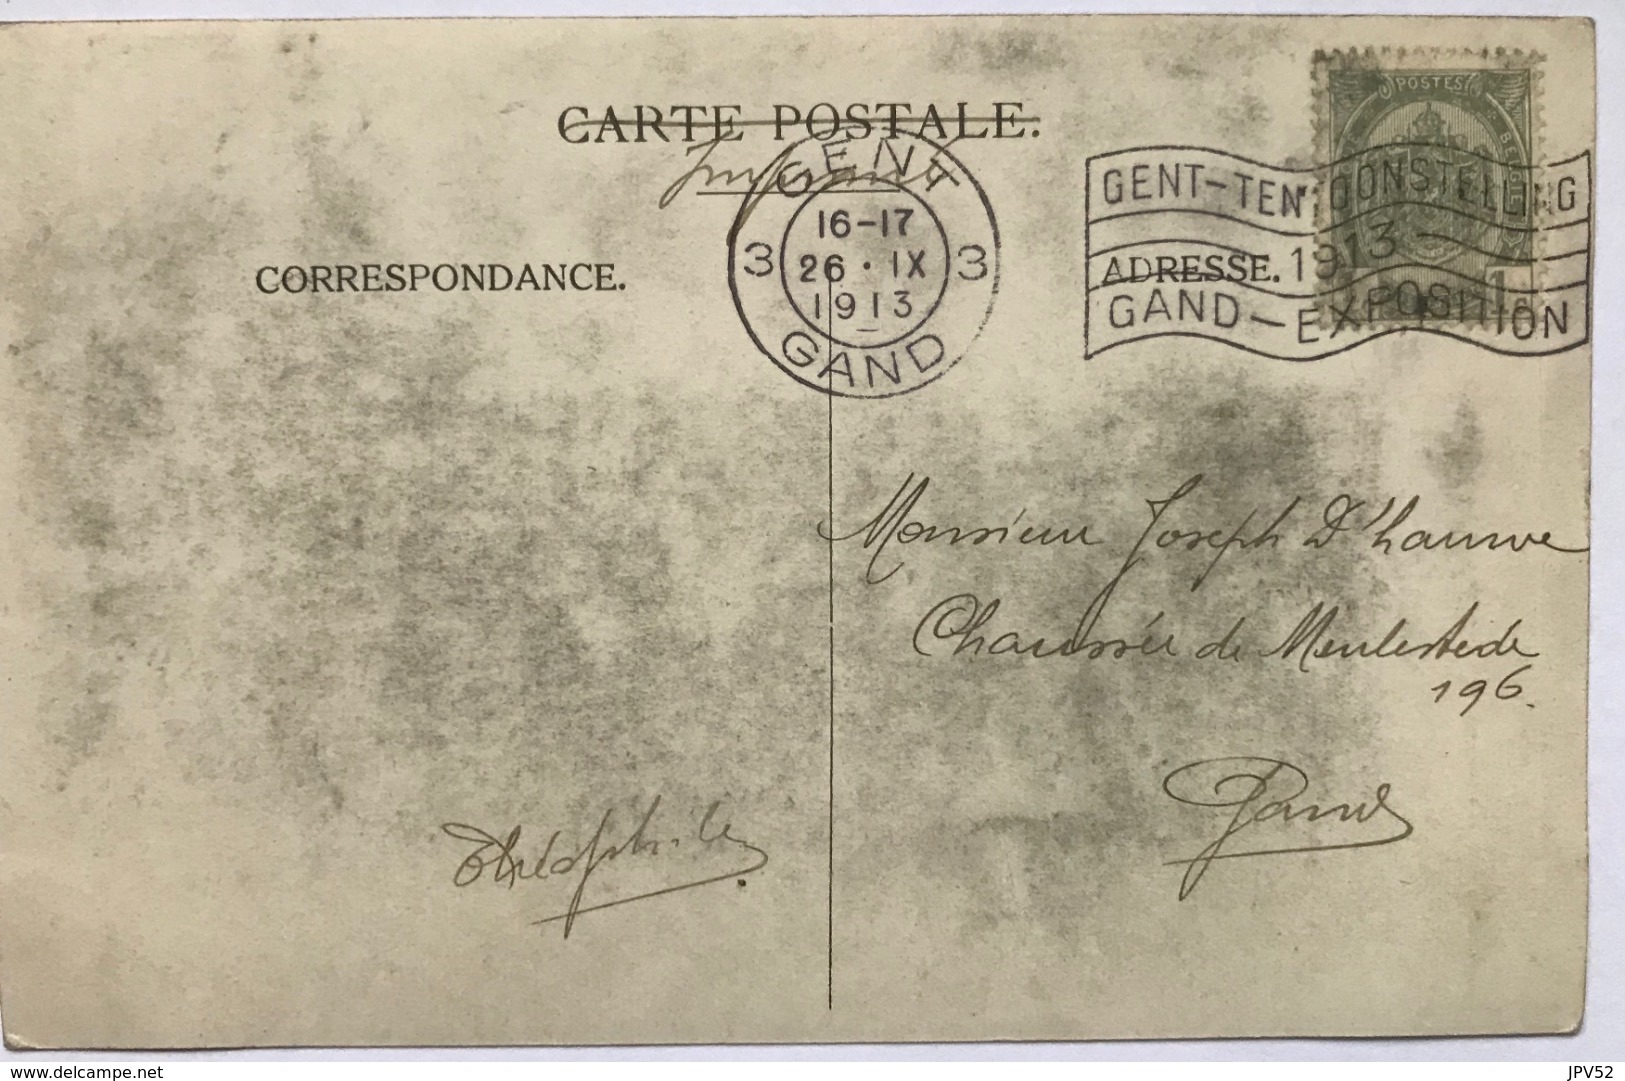 CARTE POSTALE.
Imprimé
GENT
3 16-17 3
26 · IX
1913
GAND
POSTES
1
GENT-TENTOONSTELLING
1913
GAND-EXPOSITION
CORRESPONDANCE.
ADRESSE.
Monsieur Joseph D'hauwe
Chaussée de Meulestede
196.
Gand
Théophile
delcampe.net
JPV52